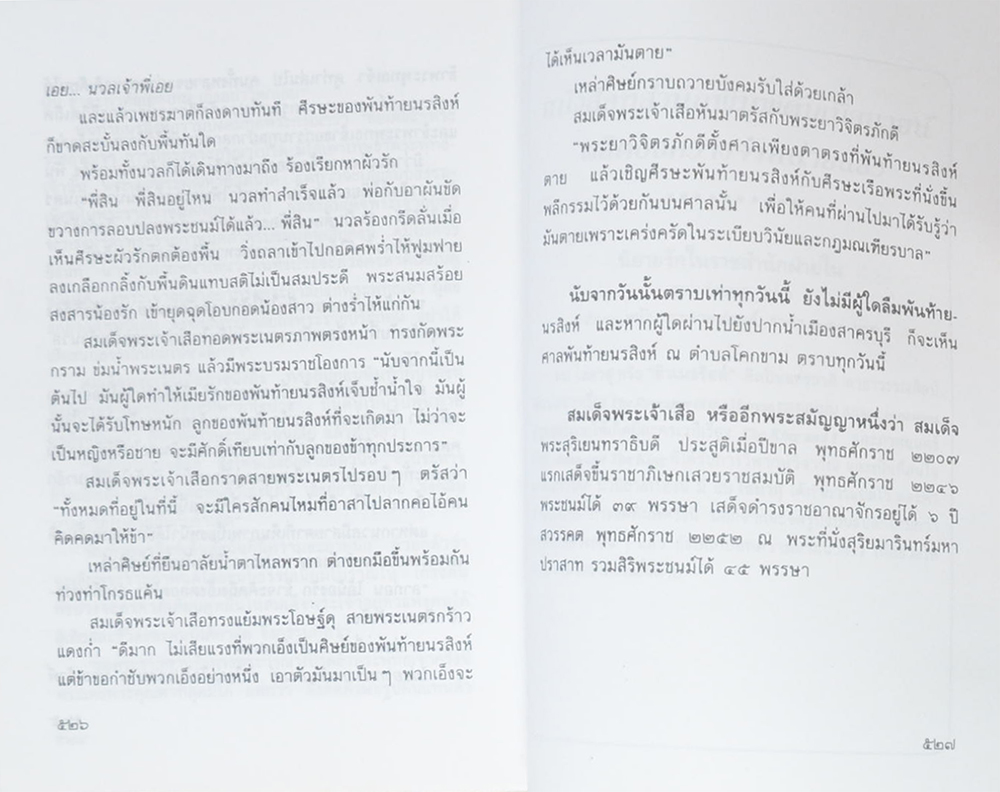 เอย... นวลเจ้าพี่เอย
และแล้วเพชรฆาตก็ลงดาบทันที ศีรษะของพันท้ายนรสิงห์
ก็ขาดสะบั้นลงกับพื้นทันใด
พร้อมทั้งนวลก็ได้เดินทางมาถึง ร้องเรียกหาผัวรัก
“พี่สิน พี่สินอยู่ไหน นวลทำสำเร็จแล้ว พ่อกับอาผันขัด
ขวางการลอบปลงพระชนม์ได้แล้ว... พี่สิน” นวลร้องกรีดลั่นเมื่อ
เห็นศีรษะผัวรักตกต้องพื้น วิ่งถลาเข้าไปกอดศพร่ำไห้ฟูมฟาย
ลงเกลือกกลิ้งกับพื้นดินแทบสติไม่เป็นสมประดี พระสนมสร้อย
สงสารน้องรัก เข้ายุดฉุดโอบกอดน้องสาว ต่างร่ำไห้แก่กัน
สมเด็จพระเจ้าเสือทอดพระเนตรภาพตรงหน้า ทรงกัดพระ
กราม ข่มน้ำพระเนตร แล้วมีพระบรมราชโองการ “นับจากนี้เป็น
ต้นไป มันผู้ใดทำให้เมียรักของพันท้ายนรสิงห์เจ็บช้ำน้ำใจ มันผู้
นั้นจะได้รับโทษหนัก ลูกของพันท้ายนรสิงห์ที่จะเกิดมา ไม่ว่าจะ
เป็นหญิงหรือชาย จะมีศักดิ์เทียบเท่ากับลูกของข้าทุกประการ”
สมเด็จพระเจ้าเสือกราดสายพระเนตรไปรอบๆ ตรัสว่า
“ทั้งหมดที่อยู่ในที่นี้ จะมีใครสักคนไหมที่อาสาไปลากคอไอ้คน
คิดคดมาให้ข้า”
เหล่าศิษย์ที่ยืนอาลัยน้ำตาไหลพราก ต่างยกมือขึ้นพร้อมกัน
ท่วงท่าโกรธแค้น
สมเด็จพระเจ้าเสือทรงแย้มพระโอษฐ์ดุ สายพระเนตรกร้าว
แดงก่ำ “ดีมาก ไม่เสียแรงที่พวกเอ็งเป็นศิษย์ของพันท้ายนรสิงห์
แต่ข้าขอกำชับพวกเอ็งอย่างหนึ่ง เอาตัวมันมาเป็นๆ พวกเอ็งจะ
๕๒๖
ได้เห็นเวลามันตาย”
เหล่าศิษย์กราบถวายบังคมรับใส่ด้วยเกล้า
สมเด็จพระเจ้าเสือหันมาตรัสกับพระยาวิจิตรภักดี
“พระยาวิจิตรภักดีตั้งศาลเพียงตาตรงที่พันท้ายนรสิงห์
ตาย แล้วเชิญศีรษะพันท้ายนรสิงห์กับศีรษะเรือพระที่นั่งขึ้น
พลีกรรมไว้ด้วยกันบนศาลนั้น เพื่อให้คนที่ผ่านไปมาได้รับรู้ว่า
มันตายเพราะเคร่งครัดในระเบียบวินัยและกฎมณเฑียรบาล”
นับจากวันนั้นตราบเท่าทุกวันนี้ ยังไม่มีผู้ใดลืมพันท้าย-
นรสิงห์ และหากผู้ใดผ่านไปยังปากน้ำเมืองสาครบุรี ก็จะเห็น
ศาลพันท้ายนรสิงห์ ณ ตำบลโคกขาม ตราบทุกวันนี้
สมเด็จพระเจ้าเสือ หรืออีกพระสมัญญาหนึ่งว่า สมเด็จ
พระสุริเยนทราธิบดี ประสูติเมื่อปีขาล พุทธศักราช ๒๒๐๗
แรกเสด็จขึ้นราชาภิเษกเสวยราชสมบัติ พุทธศักราช ๒๒๔๖
พระชนม์ได้ ๓๙ พรรษา เสด็จดำรงราชอาณาจักรอยู่ได้ ๖ ปี
สวรรคต พุทธศักราช ๒๒๕๒ ณ พระที่นั่งสุริยมารินทร์มหา
ปราสาท รวมสิริพระชนม์ได้ ๔๕ พรรษา
๕๒๗